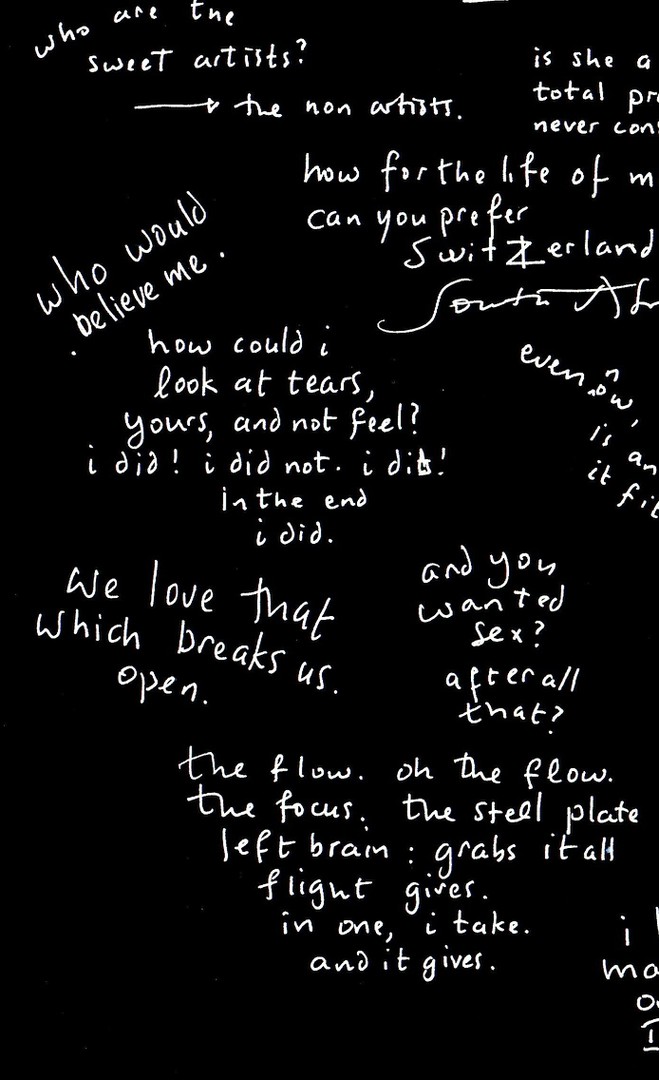 who are the
sweet artists?
→ the non artists.
is she a
total
never
how for the life of
can you prefer
Switzerland
South
who would
believe me.
even now,
is an
it
how could i
look at tears,
yours, and not feel?
i did! i did not. i did!
in the end
i did.
we love that
which breaks us.
open.
and you
wanted
sex?
after all
that?
the flow. oh the flow.
the focus. the steel plate
left brain: grabs it all
flight gives.
in one, i take.
and it gives.
i